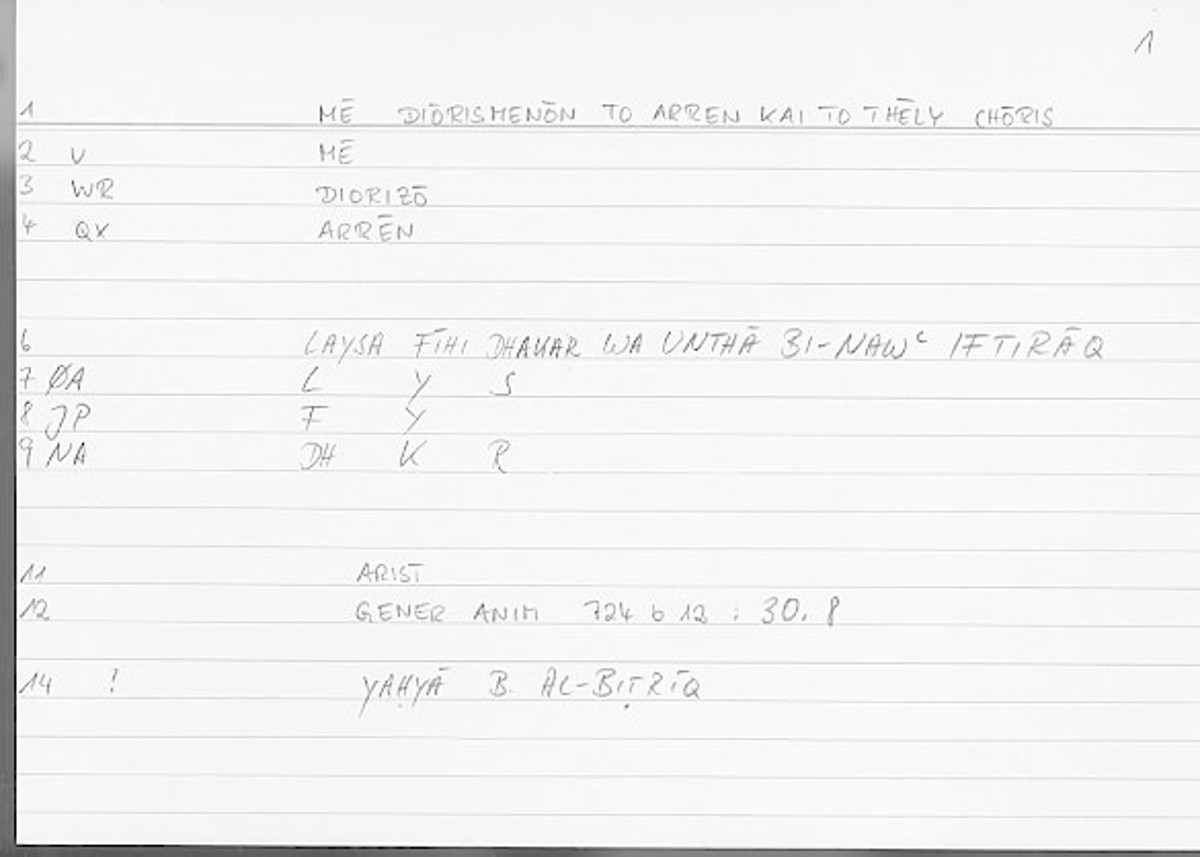 1
1 MĒ DIŌRISMENŌN TO ARREN KAI TO THĒLY CHŌRIS
2 V MĒ
3 WR DIORIZŌ
4 QX ARRĒN
6 LAYSA FĪHI DHAKAR WA UNTHĀ BI-NAWʿ IFTIRĀQ
7 ØA L Y S
8 JP F Y
9 NA DH K R
11 ARIST
12 GENER ANIM 724 b 12 ; 30.8
14 ! YAḤYĀ B. AL-BIṬRĪQ